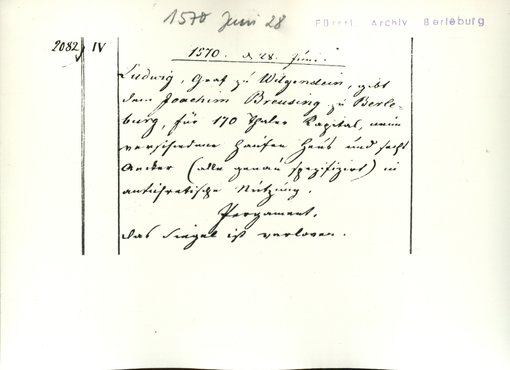 1570 Juni 28
Fürstl. Archiv Berleburg
2082, IV
1570. d. 28. Juni.
Ludwig, Graf zu Witgenstein, gibt
dem Joachim Breusing zu Berle-
burg, für 170 Thaler Kapital, neun
verschiedene Haufen Heus und sechs
Aecker (alle genau spezifizirt) in
antichretische Nutzung.
Pergament.
das Siegel ist verloren.